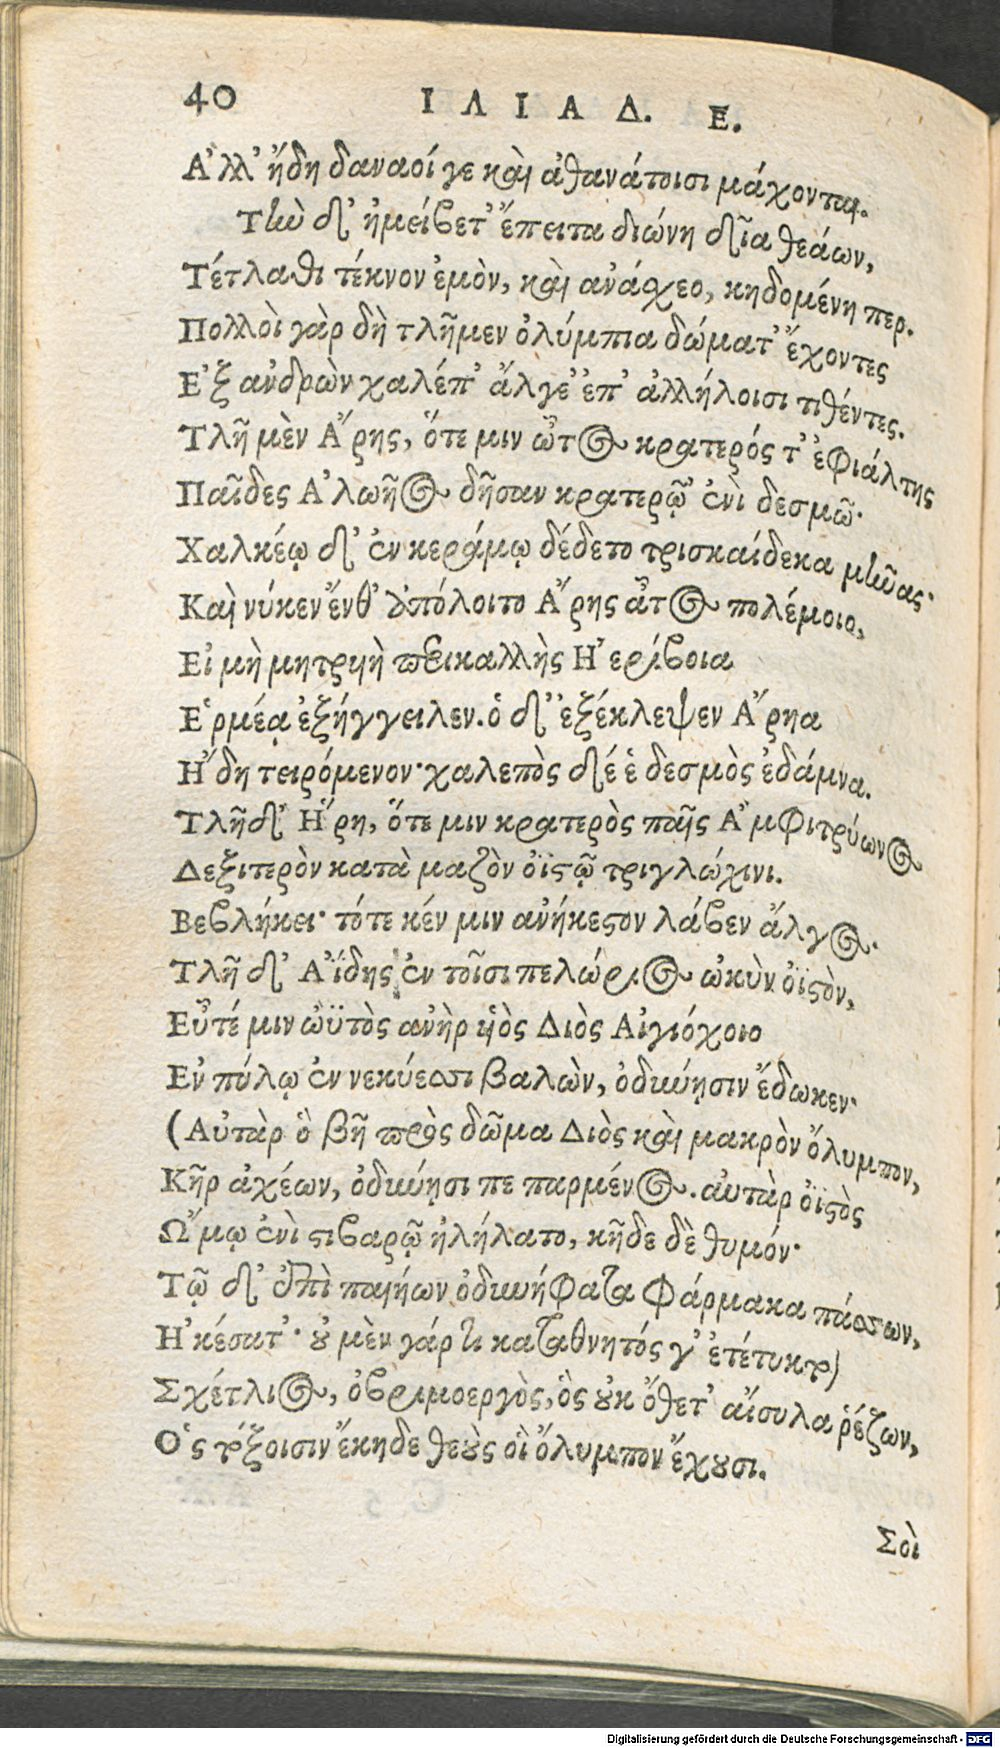 40 ΙΛΙΑΔ. Ε.
Ἀλλ' ἤδη δαναοί γε καὶ ἀθανάτοισι μάχονται.
Τὴν δ' ἠμείβετ' ἔπειτα διώνη δῖα θεάων,
Τέτλαθι τέκνον ἐμὸν, καὶ ἀνάσχεο, κηδομένη περ.
Πολλοὶ γὰρ δὴ τλῆμεν ὀλύμπια δώματ' ἔχοντες
Ἐξ ἀνδρῶν χαλέπ' ἄλγε' ἐπ' ἀλλήλοισι τιθέντες.
Τλῆ μὲν Ἄρης, ὅτε μιν ὦτος κρατερός τ' ἐφιάλτης
Παῖδες Ἀλωῆος δῆσαν κρατερῷ ἐνὶ δεσμῶ·
Χαλκέῳ δ' ἐν κεράμῳ δέδετο τρισκαίδεκα μῆνας·
Καὶ νύκεν ἔνθ' ἀπόλοιτο Ἄρης ἆτος πολέμοιο,
Εἰ μὴ μητρυὴ περικαλλὴς Ἠερίβοια
Ἑρμέᾳ ἐξήγγειλεν. ὁ δ' ἐξέκλεψεν Ἄρηα
Ἤδη τειρόμενον· χαλεπὸς δέ ἑ δεσμὸς ἐδάμνα.
Τλῆ δ' Ἥρη, ὅτε μιν κρατερὸς παῖς Ἀμφιτρύωνος
Δεξιτερὸν κατὰ μαζὸν ὀϊστῷ τριγλώχινι.
Βεβλήκει· τότε κέν μιν ἀνήκεστον λάβεν ἄλγος.
Τλῆ δ' Ἀΐδης ἐν τοῖσι πελώριος ὠκὺν ὀϊστὸν,
Εὖτέ μιν ὠϋτὸς ἀνὴρ υἱὸς Διὸς Αἰγιόχοιο
Ἐν πύλῳ ἐν νεκύεσσι βαλὼν, ὀδύνῃσιν ἔδωκεν·
(Αὐτὰρ ὁ βῆ πρὸς δῶμα Διὸς καὶ μακρὸν ὄλυμπον,
Κῆρ ἀχέων, ὀδύνῃσι πεπαρμένος. αὐτὰρ ὀϊστὸς
Ὤμῳ ἐνὶ στιβαρῷ ἠλήλατο, κῆδε δὲ θυμόν·
Τῷ δ' ἐπὶ παιήων ὀδυνήφατα φάρμακα πάσσων,
Ἠκέσατ'· οὐ μὲν γάρ τι καταθνητός γ' ἐτέτυκτο)
Σχέτλιος, ὀβριμοεργὸς, ὃς οὐκ ὄθετ' αἴσυλα ῥέζων,
Ὃς τόξοισιν ἔκηδε θεοὺς οἳ ὄλυμπον ἔχουσι.
Σοὶ
Digitalisierung gefördert durch die Deutsche Forschungsgemeinschaft - DFG